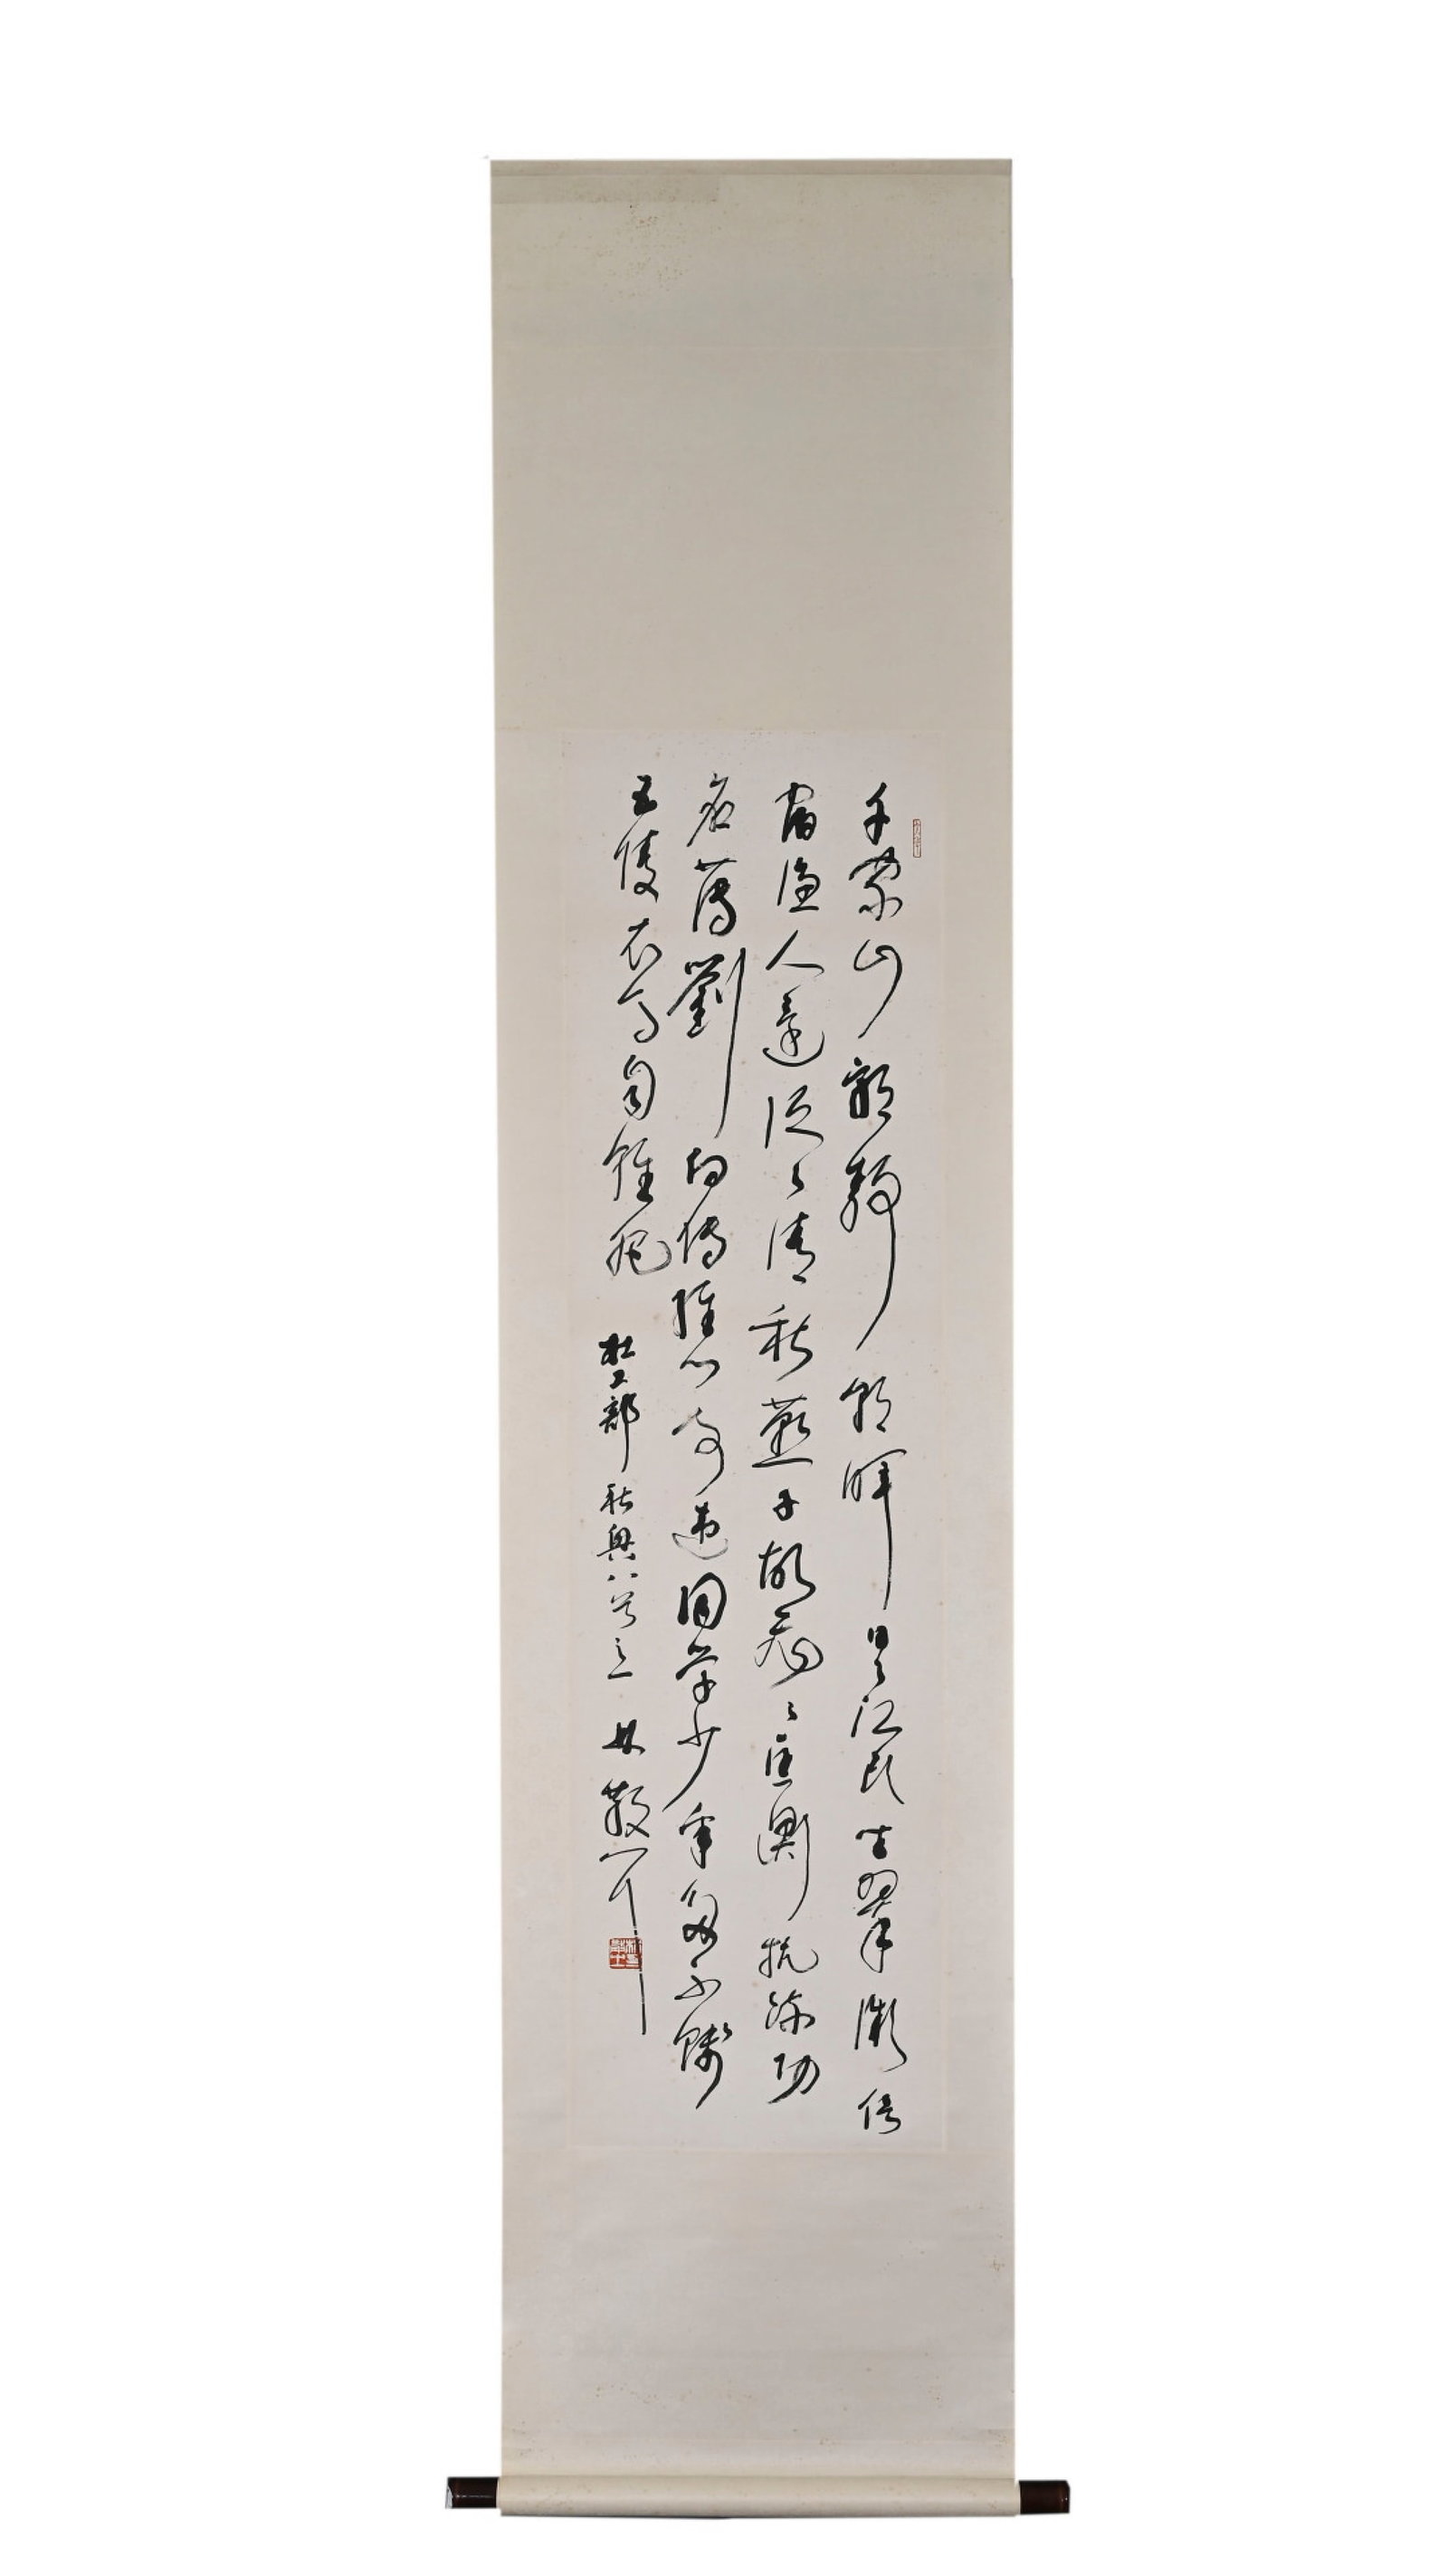 千家山郭靜朝暉日々江樓坐翠微信
宿漁人還泛々清秋燕子故飛々匡衡抗疏功
名薄劉向傳經心事違同學少年多不賤
五陵衣馬自輕肥 杜工部秋興八首之一 林散耳